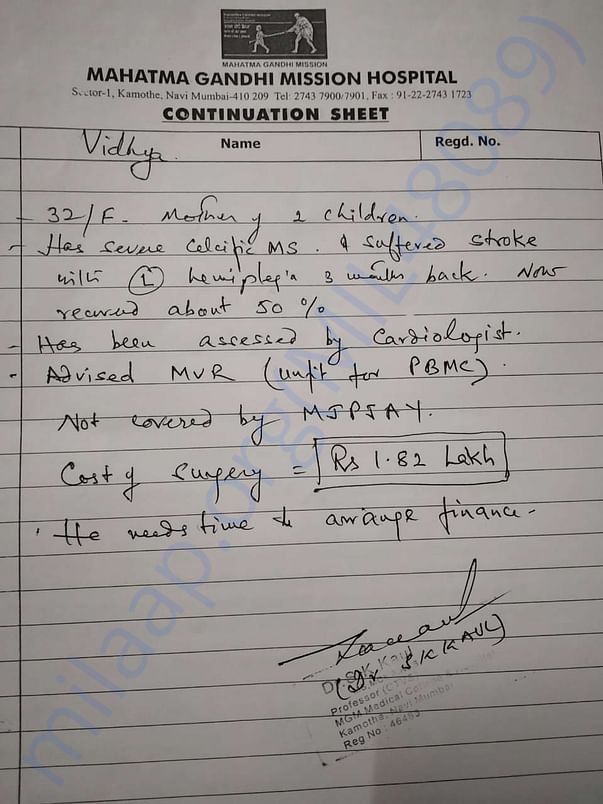 MAHATMA GANDHI MISSION
MAHATMA GANDHI MISSION HOSPITAL
Sector-1, Kamothe, Navi Mumbai-410 209 Tel: 2743 7900/7901, Fax : 91-22-2743 1723
CONTINUATION SHEET
Vidhya. Name Regd. No.
- 32/F. Mother of 2 children.
- Has severe Calcific MS. & suffered stroke
with (L) hemiplegia 3 months back. Now
recovered about 50 %
- Has been assessed by Cardiologist.
- Advised MVR (unfit for PBMC).
Not covered by MJPJAY.
Cost of surgery = Rs 1.82 Lakh
He needs time to arrange finance-
(Dr S K KAUL)
Dr. S.K. Kaul
Professor (CTVS)
MGM Medical
Kamothe, Navi Mumbai
Reg No : 46483
milaap.org(MIL48089)